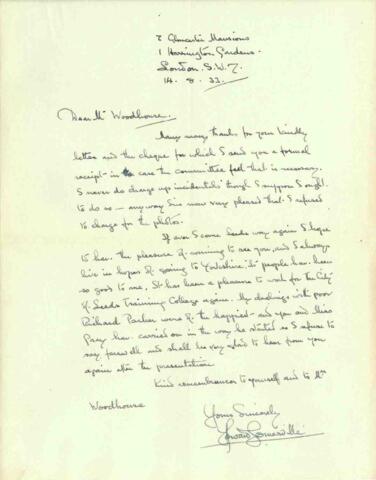 2 Gloucester Mansions
1 Harrington Gardens.
London. S.W.7.
14. 8. 33.
Dear Mr Woodhouse.
Many many thanks for your kindly
letter and the cheque for which I send you a formal
receipt in case the committee feel that is necessary.
I never do charge up incidentals though I suppose I ought
to do so — anyway I'm now very pleased that I refused
to charge for the photos.
If ever I come Leeds way again I hope
to have the pleasure of coming to see you, and I always
live in hopes of going to Yorkshire, its people have been
so good to me, it has been a pleasure to work for the City
of Leeds Training College again. My dealings with poor
Richard Parker were of the happiest and you and Miss
have carried on in the way he started so I refuse to
say farewell and shall be very glad to hear from you
again after the presentation.
Kind remembrances to yourself and to Mrs
Woodhouse
Yours Sincerely
Howard Somerville